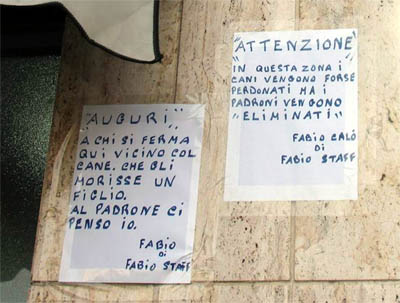 "AUGURI"
A CHI SI FERMA
QUI VICINO COL
CANE. CHE GLI
MORISSE UN
FIGLIO.
AL PADRONE CI
PENSO IO.
FABIO
DI
FABIO STAFF
"ATTENZIONE"
IN QUESTA ZONA I
CANI VENGONO FORSE
PERDONATI MA I
PADRONI VENGONO
"ELIMINATI"
FABIO CALÓ
DI
FABIO STAFF